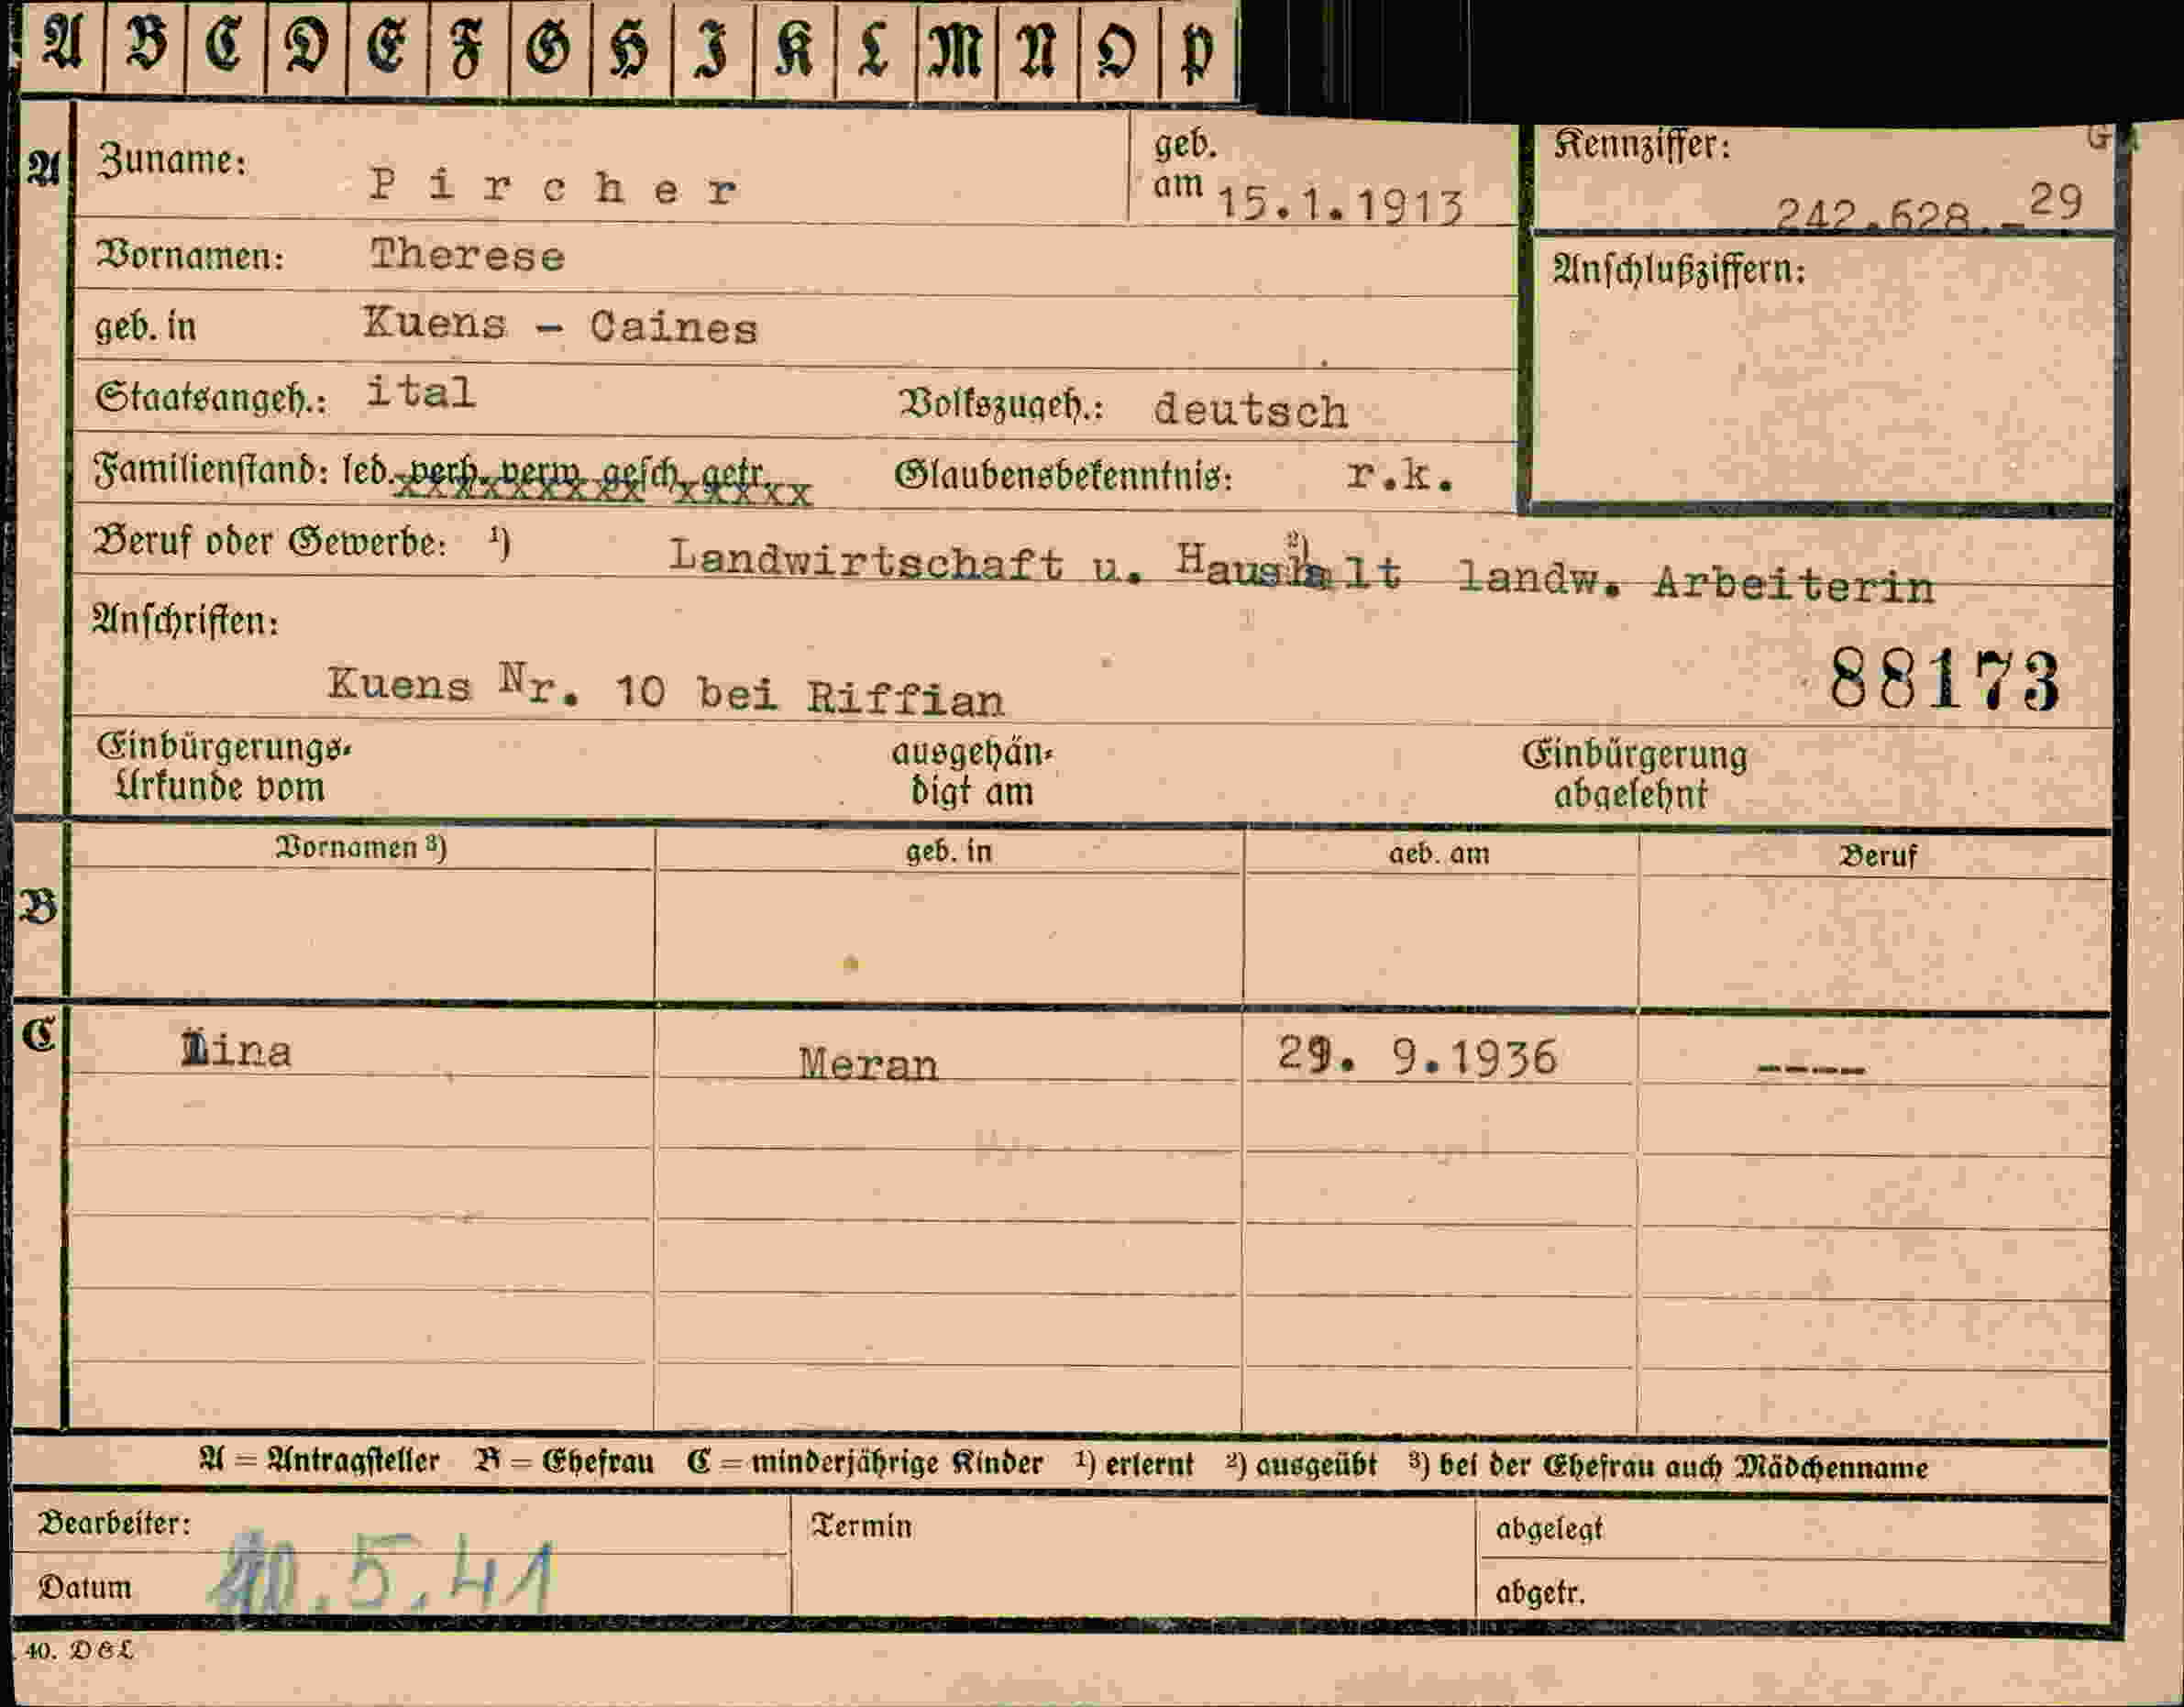 A B C D E F G H I K L M N O P
A Zuname: Pircher geb. am 15.1.1913 Kennziffer: 242.628.-29
Vornamen: Therese Anschlußziffern:
geb. in Kuens - Caines
Staatsangeh.: ital Volkszugeh.: deutsch
Familienstand: led. verh. verw. gesch. getr. Glaubensbekenntnis: r.k.
Beruf oder Gewerbe: ¹) Landwirtschaft u. Haushalt ²) landw. Arbeiterin
Anschriften:
Kuens Nr. 10 bei Riffian 88173
Einbürgerungs-
Urkunde vom
ausgehän-
digt am
Einbürgerung
abgelehnt
Vornamen ³) geb. in geb. am Beruf
B
C Lina Meran 29. 9.1936 -----
A = Antragsteller B = Ehefrau C = minderjährige Kinder ¹) erlernt ²) ausgeübt ³) bei der Ehefrau auch Mädchenname
Bearbeiter: Termin abgelegt
Datum .5.41 abgetr.
40. D&L